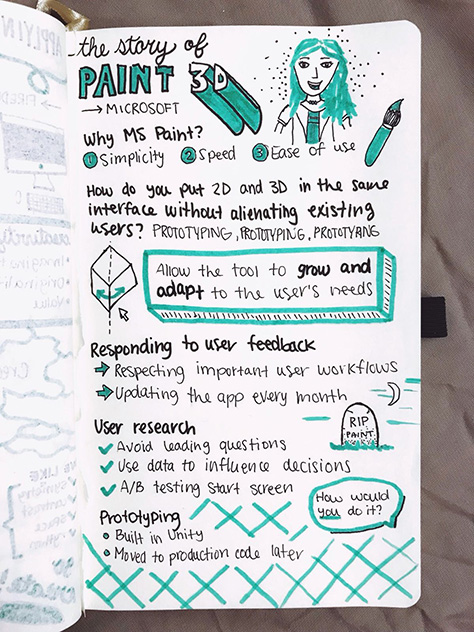 the story of
PAINT 3D
→ MICROSOFT
Why MS Paint?
① Simplicity ② Speed ③ Ease of use
How do you put 2D and 3D in the same
interface without alienating existing
users? PROTOTYPING, PROTOTYPING, PROTOTYPING
Allow the tool to grow and
adapt to the user's needs
Responding to user feedback
→ Respecting important user workflows
→ Updating the app every month
RIP
PAINT
User research
✓ Avoid leading questions
✓ Use data to influence decisions
✓ A/B testing start screen
How would
you do it?
Prototyping
• Built in Unity
• Moved to production code later